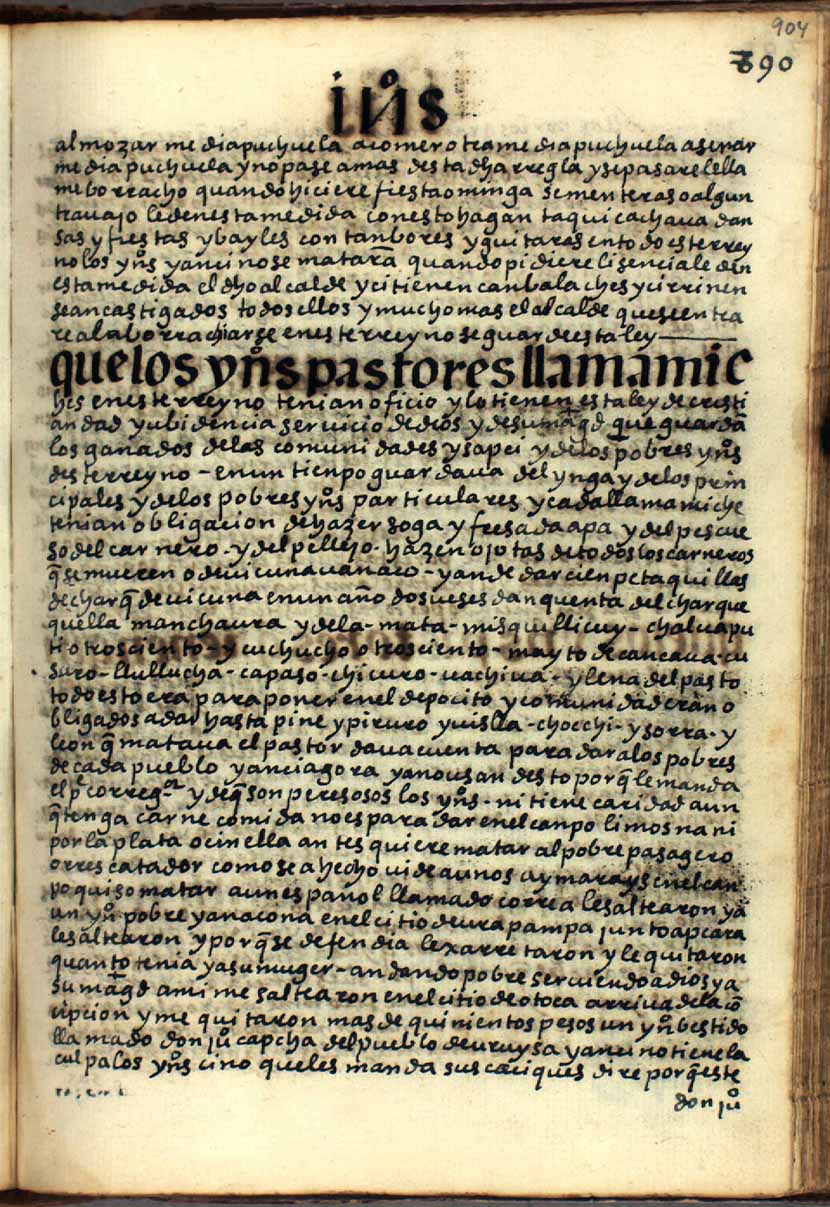 904
890
ynºs
almozar media puchuela a comer otra media puchuela a senar
media puchuela y no pase a mas desta dha rregla y si pasare lella
me borracho quando hiciere fiesta o minga sementeras o algun
travajo le den esta medida con esto hagan taqui cachaua dan
sas y fiestas y bayles con tanbores y quitaras en todo este rrey
no los ynºs y anci no se matarã quando pidiere lisencia le den
esta medida el dho alcalde y ci tienen canbalaches y ci rrinen
sean castigados todos ellos y mucho mas el alcalde que se entra
re ala borrachiarse en este rreyno se guarde esta ley
que los ynºs pastores llamamic
hes en este rreyno tenian oficio y lo tienen esta ley de cristi
andad y ubidencia servicio de dios y de su magd que guardã
los ganados de las comunidades y sapci y de los pobres ynºs
deste rreyno - en un tienpo guardava del ynga y de los prin
cipales y de los pobres ynºs particulares y cada llamamiche
tenian obligacion de hazer soga y fresada apa y del pescue
so del carnero - y del pellejo - hazen ojotas de todos los carneros
q̃ se mueren o de uicuna uanaco - y an de dar cien petaquillas
de charq̃ de uicuna en un año dos ueses dan quenta del charque
quella manchaura y de la - mata - misquillicuy - chalua pu
ti otros ciento - y cuchucho otros ciento - mayto de cancaua - cu
suro - llullucha - capaso - chicuro - uachiua - y lena del pasto
todo esto era para poner en el depocito y comunidad eran o
bligados a dar hasta pine y piruro y uislla - chocchi - y sorra - y
leon q̃ matava el pastor dava cuenta para dar a los pobres
de cada pueblo y anci agora ya no usan desto porq̃ le manda
el pe corregor y deq̃ son peresosos los ynºs - ni tiene caridad aun
q̃ tenga carne comida no es para dar en el canpo limosna ni
por la plata o cin ella antes quiere matar al pobre pasagero
o rrescatador como se a hecho uide a unos aymarays en el can
po quiso matar a un español llamado correa le saltearon y a
un ynº pobre yanacona en el citio de urapampa junto a pcara
le saltearon y porq̃ se defendia le xarretaron y le quitaron
quanto tenia y a su muger - andando pobre serviendo a dios y a
su magd a mi me saltearon en el citio de otoca arriva de la cõ
cipcion y me quitaron mas de quinientos pesos un ynº bestido
llamado don juº capcha del pueblo de uruysa y anci no tiene la
culpa los ynºs cino que les manda sus caciques dire porq̃ este
don juº